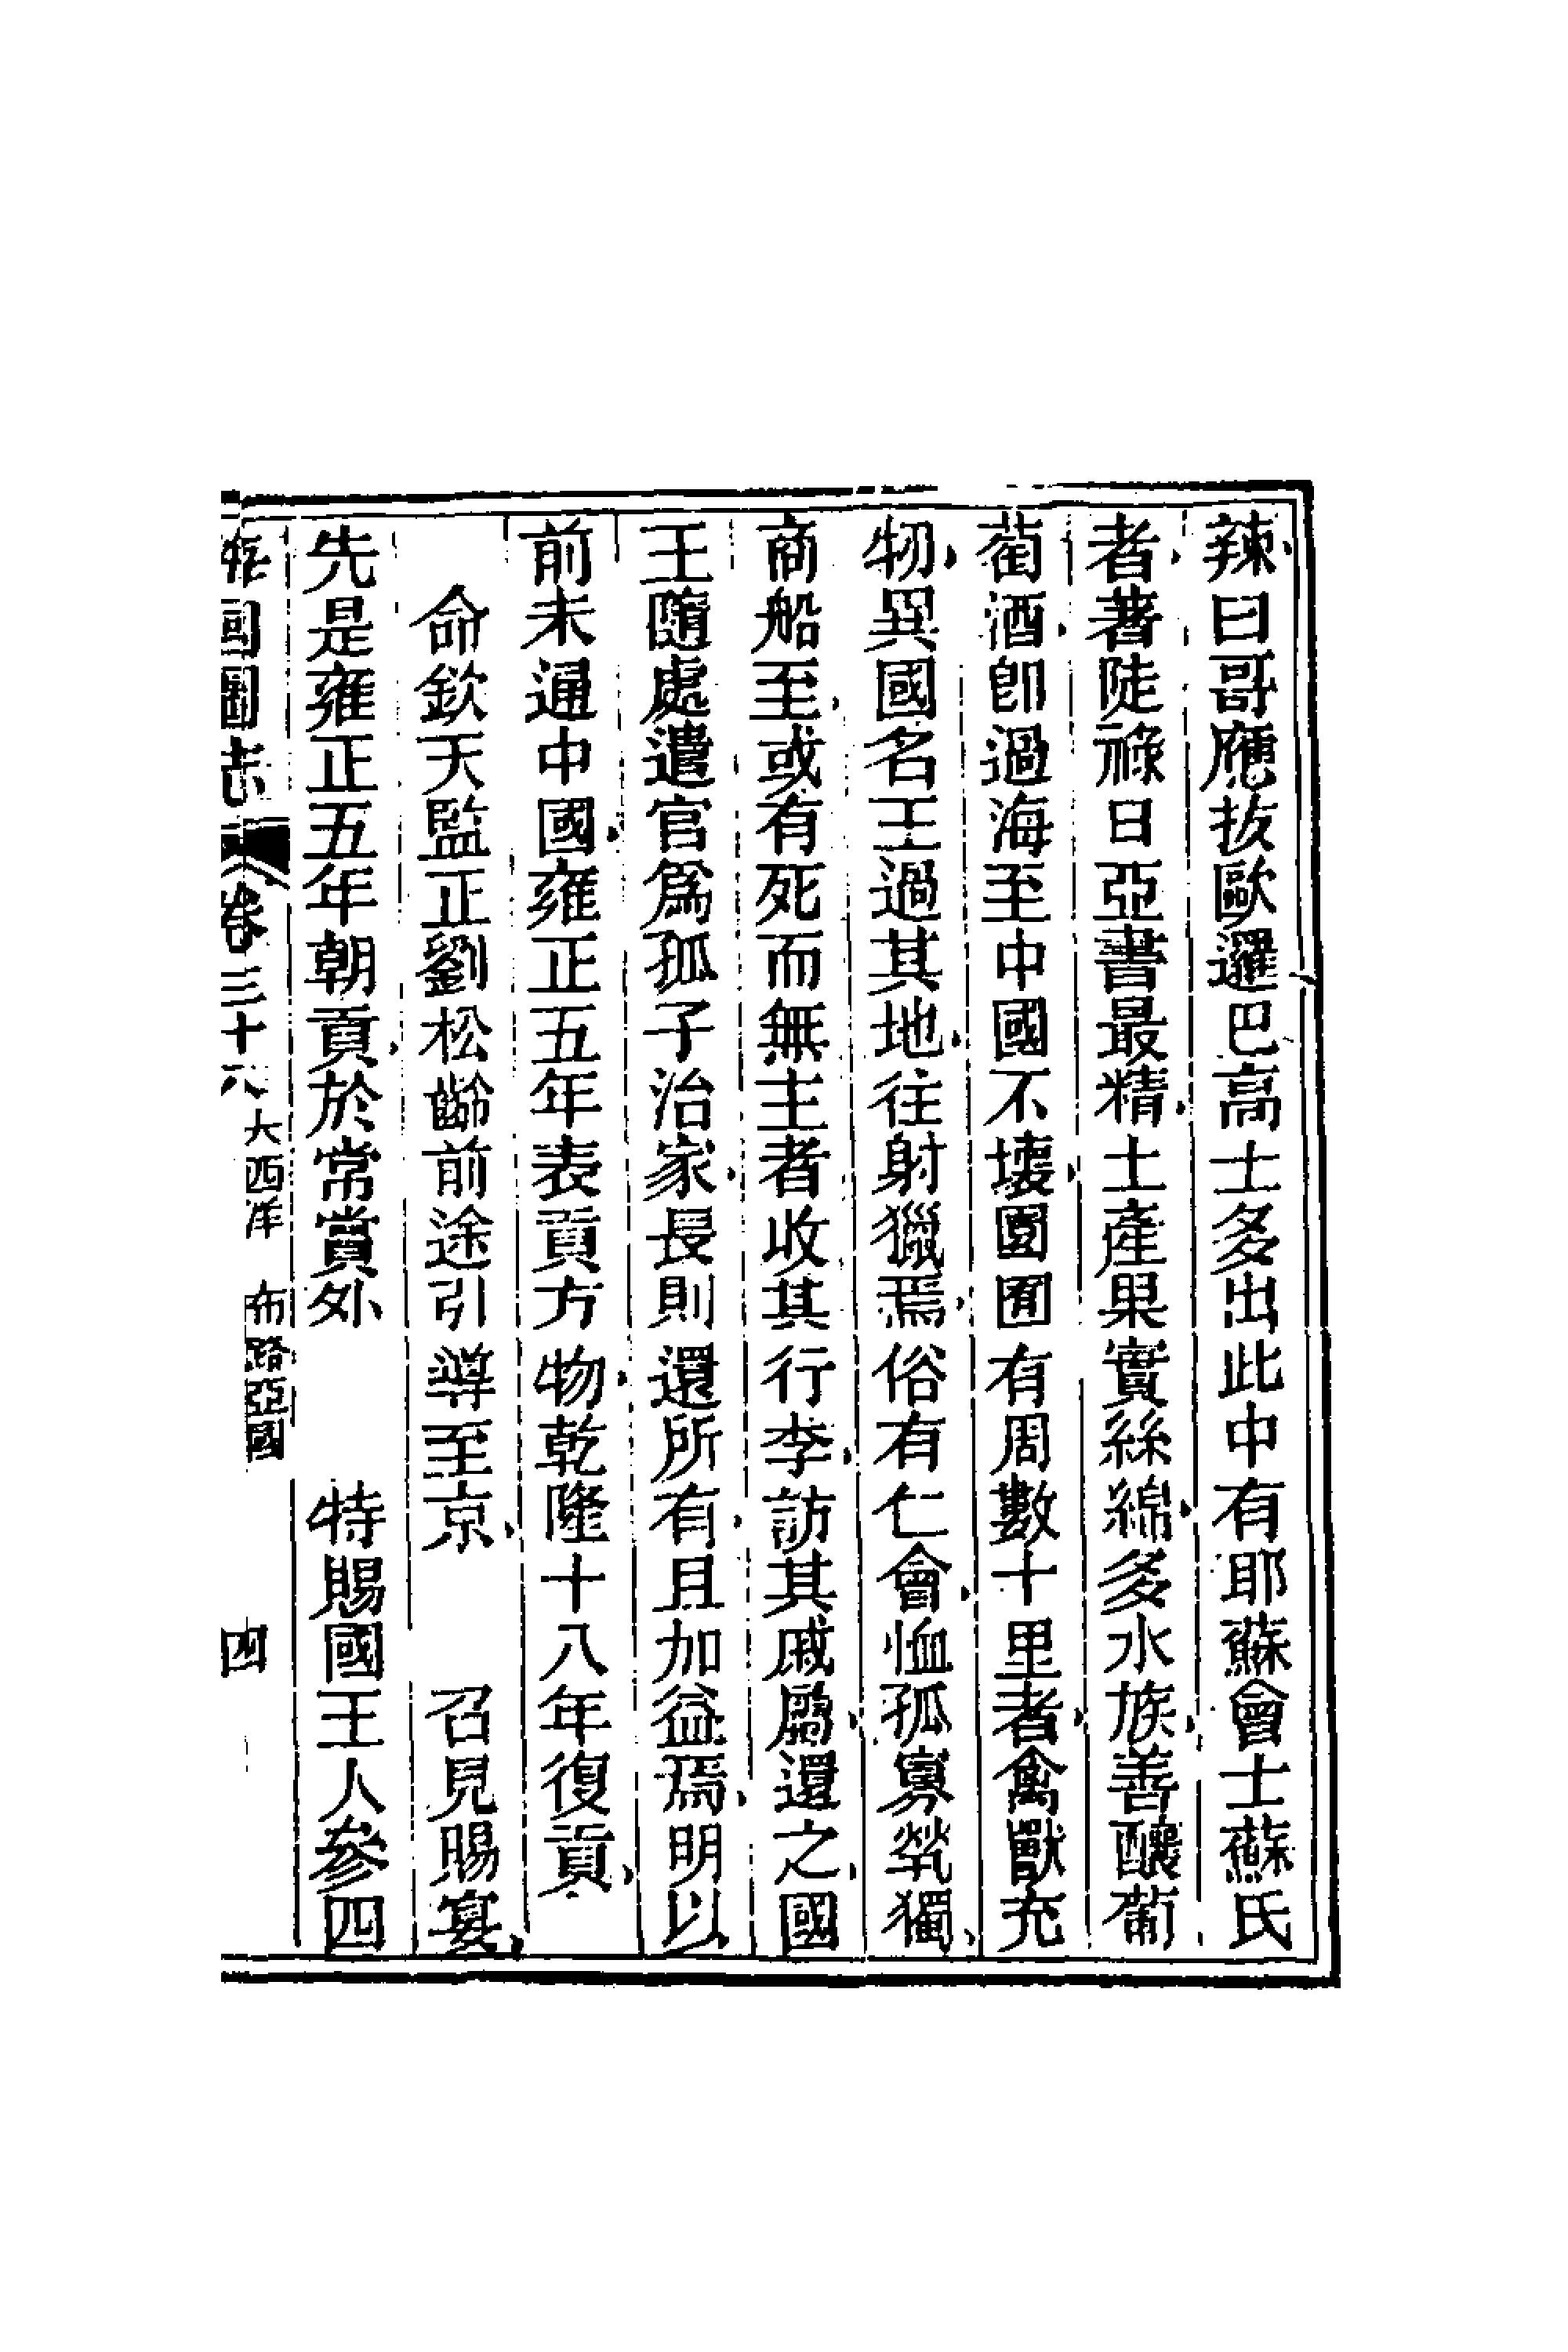 辣曰哥應拔歐邏巴高士多出此中有耶蘇會士蘇氏
者著陡祿日亞書最精土產果實絲綿多水族善釀葡
萄酒卽過海至中國不壞園囿有周數十里者禽獸充
牣異國名王過其地往射獵焉俗有仁會恤孤寡煢獨
商船至或有死而無主者收其行李訪其戚屬還之國
王隨處遣官爲孤子治家長則還所有且加益焉明以
前未通中國雍正五年表貢方物乾隆十八年復貢
命欽天監正劉松齡前途引導至京 召見賜宴
先是雍正五年朝貢於常賞外 特賜國王人參四
海國圖志 卷三十八 大西洋 布路亞國 四